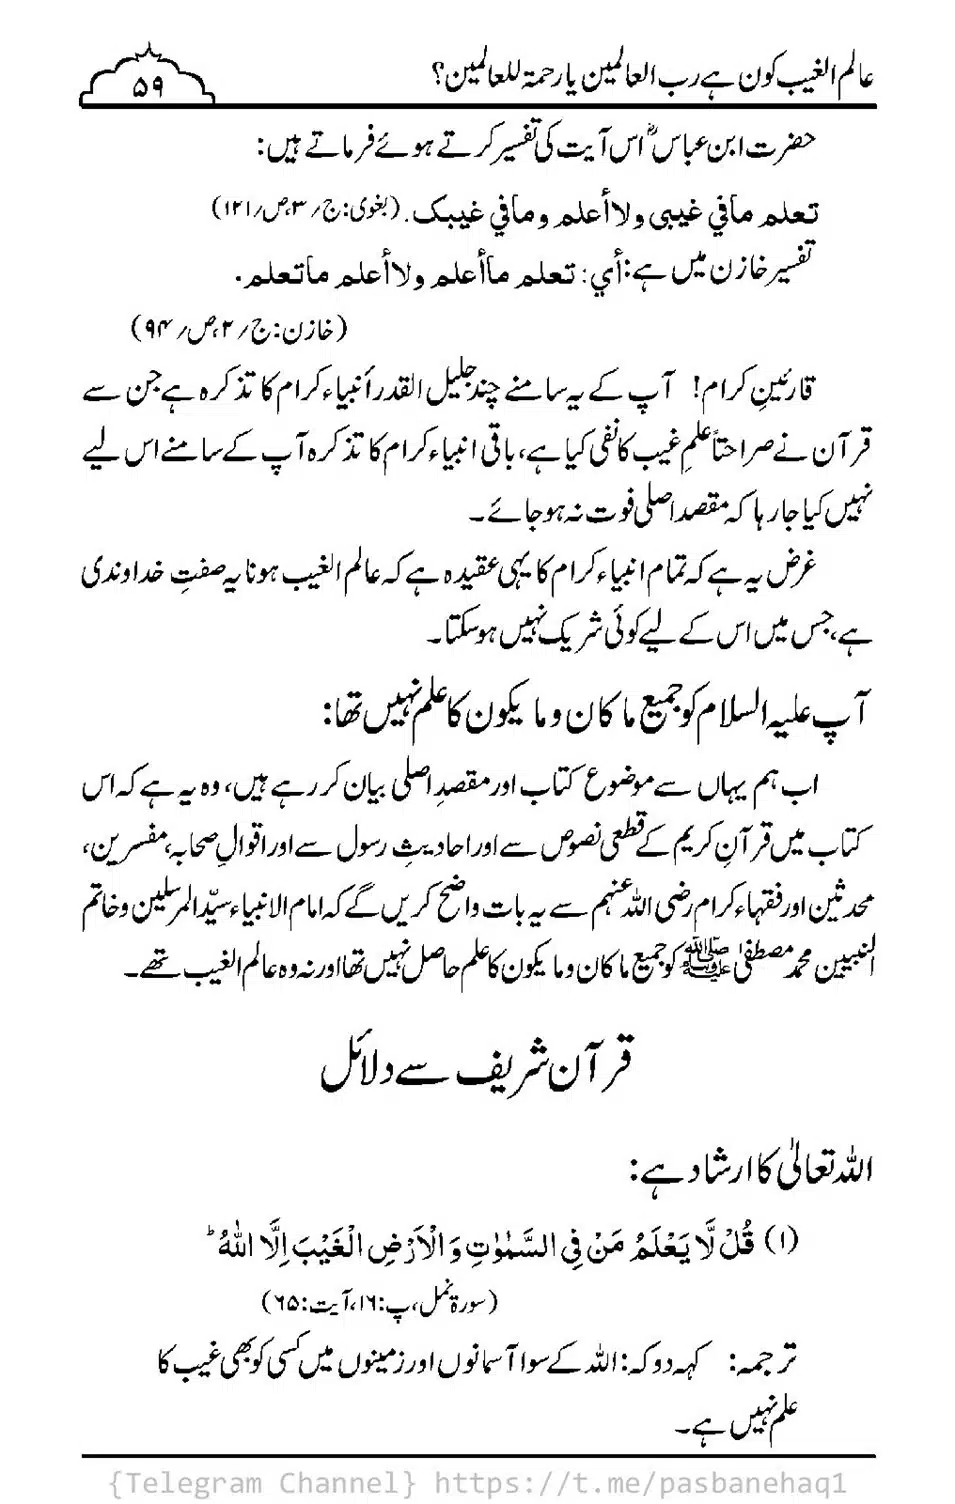 عالم الغیب کون ہے رب العالمین یا رحمۃ للعالمین؟
۵۹
حضرت ابن عباسؓ اس آیت کی تفسیر کرتے ہوئے فرماتے ہیں:
تعلم مافي غیبی ولا أعلم ومافي غیبک. (بغوی: ج/ ۳،ص/۱۲۱)
تفسیر خازن میں ہے: أي: تعلم ماأعلم ولاأعلم ماتعلم.
(خازن: ج/ ۲،ص/ ۹۴)
قارئینِ کرام! آپ کے یہ سامنے چند جلیل القدر أنبیاء کرام کا تذکرہ ہے جن سے
قرآن نے صراحتاً علمِ غیب کا نفی کیا ہے، باقی انبیاء کرام کا تذکرہ آپ کے سامنے اس لیے
نہیں کیا جارہا کہ مقصد اصلی فوت نہ ہوجائے۔
غرض یہ ہے کہ تمام انبیاء کرام کا یہی عقیدہ ہے کہ عالم الغیب ہونا یہ صفتِ خداوندی
ہے، جس میں اس کے لیے کوئی شریک نہیں ہوسکتا۔
آپ علیہ السلام کو جمیع ما کان وما یکون کا علم نہیں تھا:
اب ہم یہاں سے موضوع کتاب اور مقصدِ اصلی بیان کررہے ہیں، وہ یہ ہے کہ اس
کتاب میں قرآنِ کریم کے قطعی نصوص سے اور احادیثِ رسول سے اور اقوالِ صحابہ، مفسرین،
محدثین اور فقہاء کرام رضی اللہ عنہم سے یہ بات واضح کریں گے کہ امام الانبیاء سیّد المرسلین وخاتم
النبیین محمد مصطفیٰ ﷺ کو جمیع ما کان وما یکون کا علم حاصل نہیں تھا اور نہ وہ عالم الغیب تھے۔
قرآن شریف سے دلائل
اللہ تعالیٰ کا ارشاد ہے:
(۱) قُلْ لَّا يَعْلَمُ مَنْ فِي السَّمٰوٰتِ وَالْاَرْضِ الْغَيْبَ اِلَّا اللّٰهُ ؕ
(سورۃ نمل، پ:۱۶، آیت:۶۵)
ترجمہ: کہہ دو کہ: اللہ کے سوا آسمانوں اور زمینوں میں کسی کو بھی غیب کا
علم نہیں ہے۔
{Telegram Channel} https://t.me/pasbanehaq1